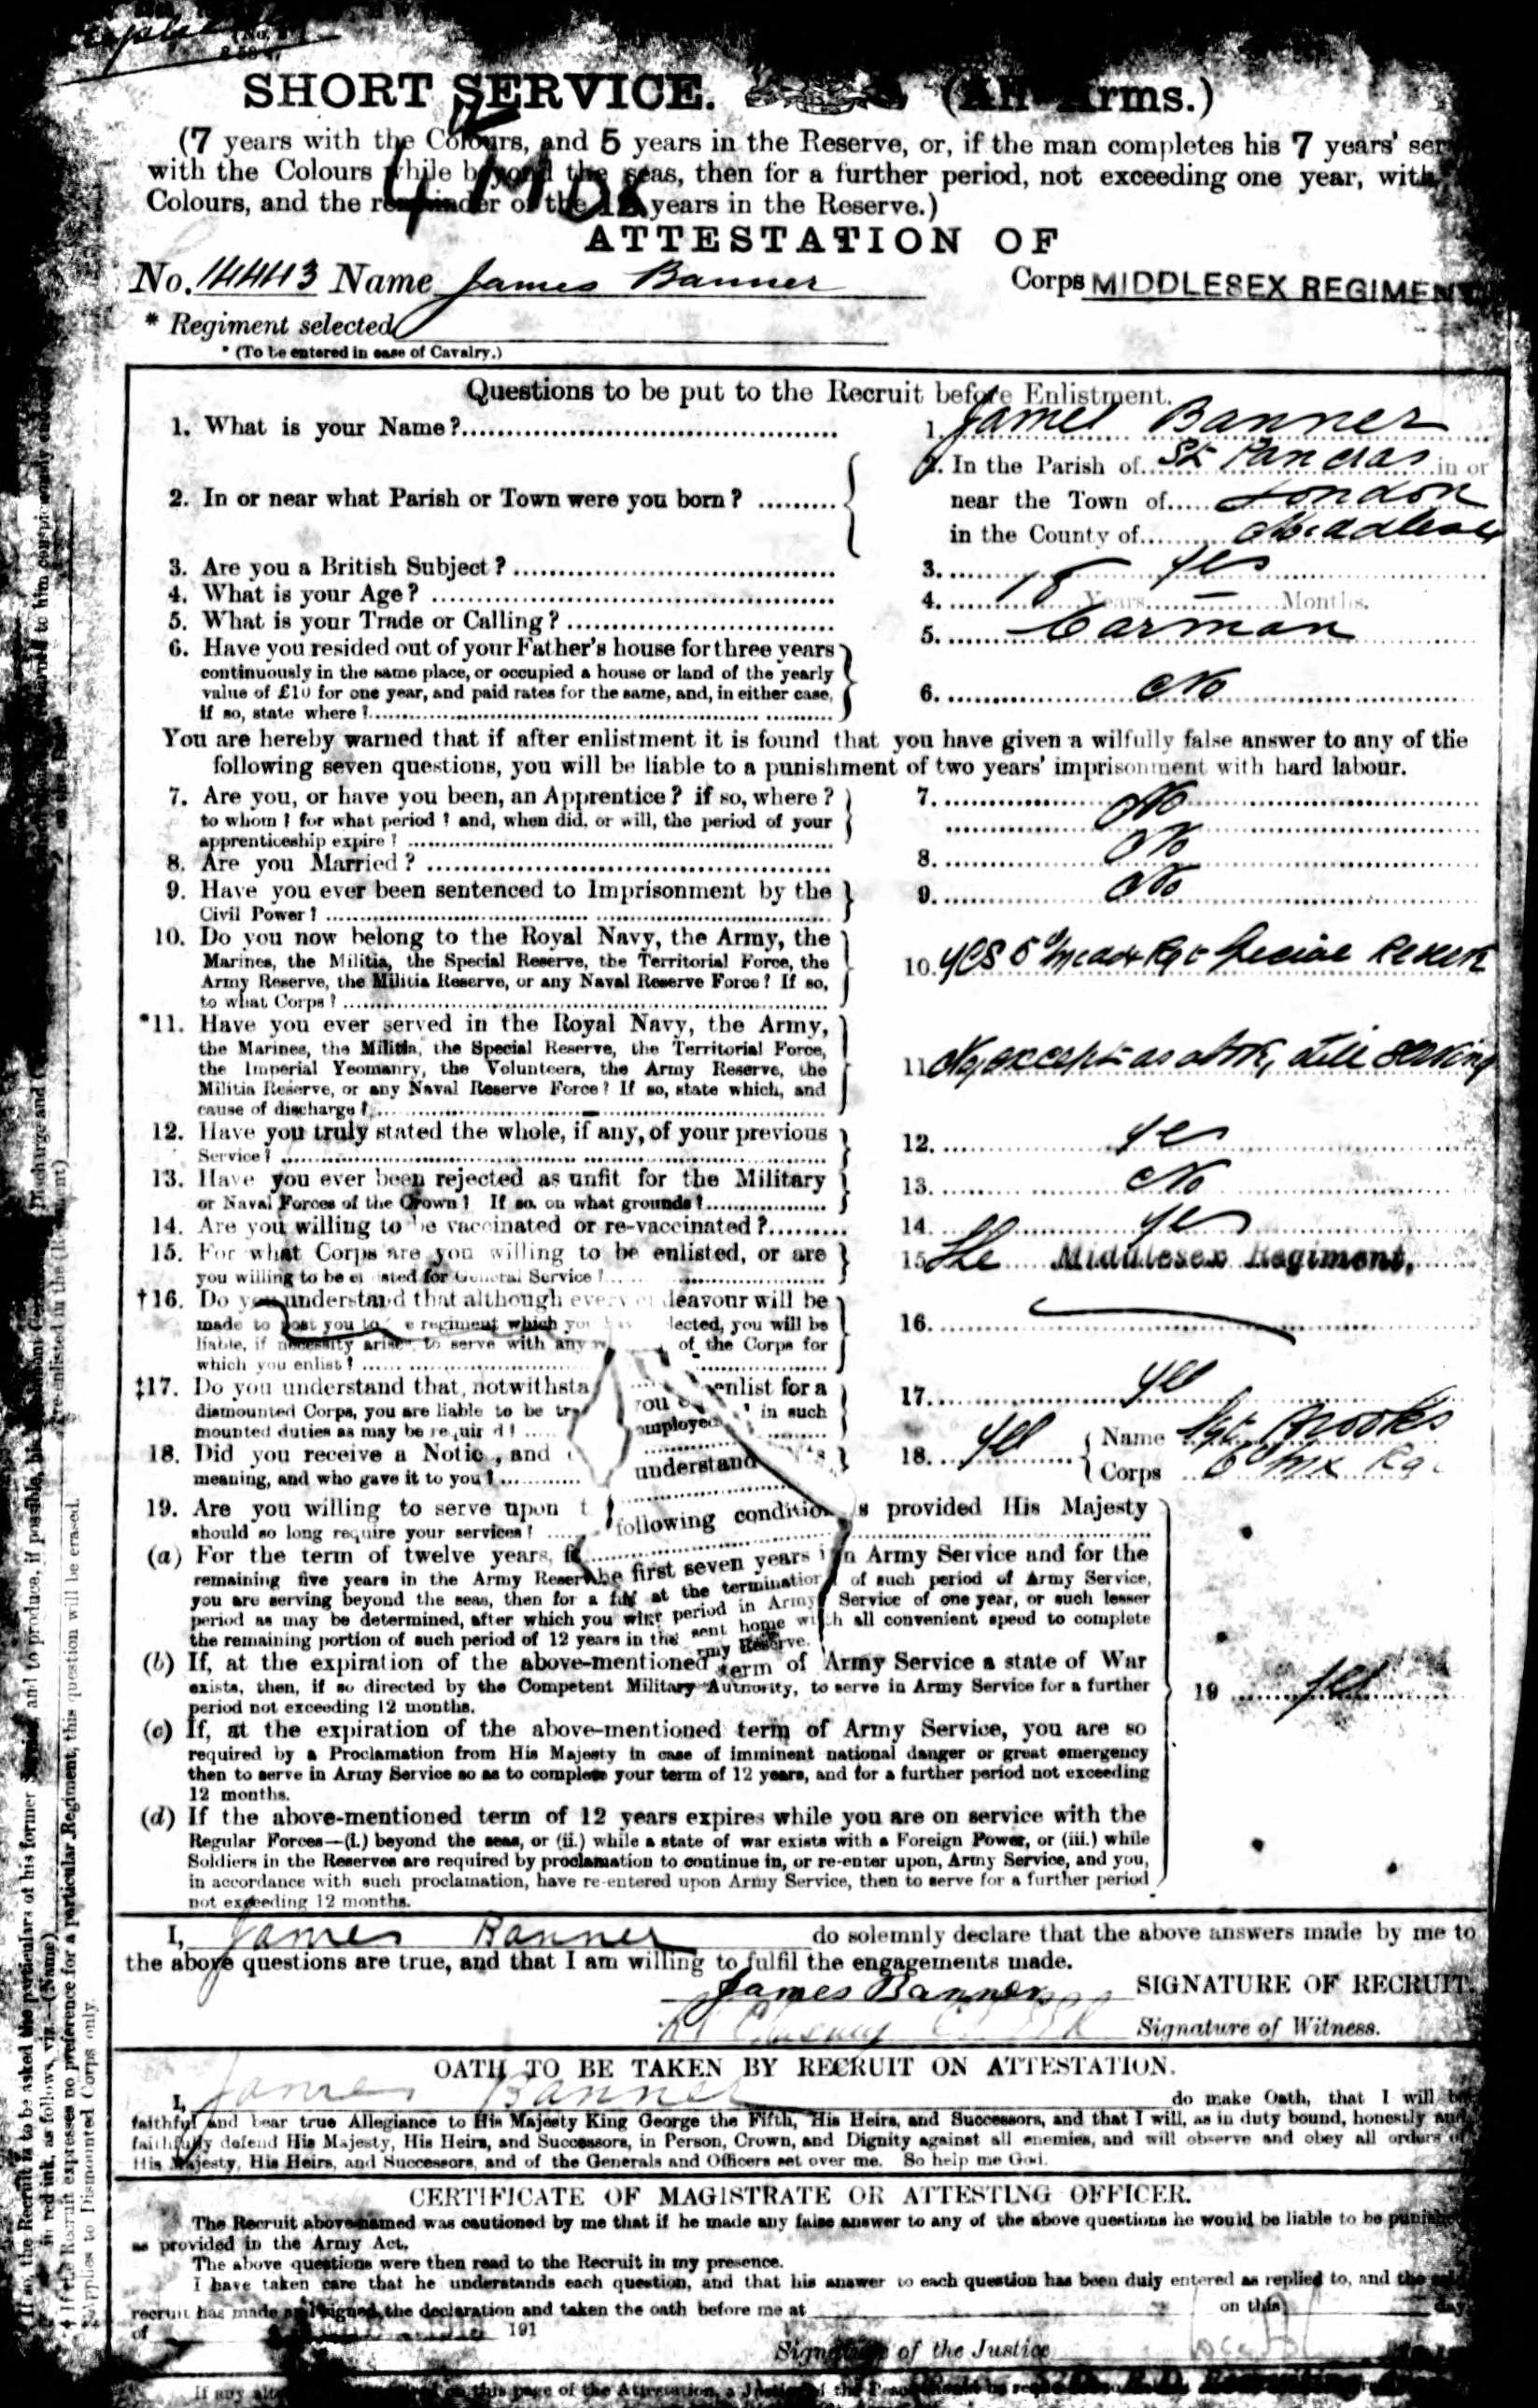 SHORT SERVICE. (All Arms.)
(7 years with the Colours, and 5 years in the Reserve, or, if the man completes his 7 years'
with the Colours while beyond the seas, then for a further period, not exceeding one year, with
Colours, and the remainder of the 12 years in the Reserve.)
ATTESTATION OF
No. 14443 Name James Banner Corps MIDDLESEX REGIMENT
* Regiment selected
* (To be entered in case of Cavalry.)
Questions to be put to the Recruit before Enlistment.
1. What is your Name? 1. James Banner
2. In or near what Parish or Town were you born? 2. In the Parish of St Pancras in or
near the Town of London
in the County of Middlesex
3. Are you a British Subject? 3. Yes
4. What is your Age? 4. 18 Years — Months.
5. What is your Trade or Calling? 5. Carman
6. Have you resided out of your Father's house for three years
continuously in the same place, or occupied a house or land of the yearly
value of £10 for one year, and paid rates for the same, and, in either case,
if so, state where? 6. No
You are hereby warned that if after enlistment it is found that you have given a wilfully false answer to any of the
following seven questions, you will be liable to a punishment of two years' imprisonment with hard labour.
7. Are you, or have you been, an Apprentice? if so, where? 7. No
to whom? for what period? and, when did, or will, the period of your
apprenticeship expire?
8. Are you Married? 8. No
9. Have you ever been sentenced to Imprisonment by the 9. No
Civil Power?
10. Do you now belong to the Royal Navy, the Army, the
Marines, the Militia, the Special Reserve, the Territorial Force, the 10. Yes 5 Middx Rgt Special Reserve
Army Reserve, the Militia Reserve, or any Naval Reserve Force? If so,
to what Corps?
*11. Have you ever served in the Royal Navy, the Army,
the Marines, the Militia, the Special Reserve, the Territorial Force,
the Imperial Yeomanry, the Volunteers, the Army Reserve, the 11. No, except as above, still serving
Militia Reserve, or any Naval Reserve Force? If so, state which, and
cause of discharge?
12. Have you truly stated the whole, if any, of your previous 12. Yes
Service?
13. Have you ever been rejected as unfit for the Military 13. No
or Naval Forces of the Crown? If so, on what grounds?
14. Are you willing to be vaccinated or re-vaccinated? 14. Yes
15. For what Corps are you willing to be enlisted, or are 15. The Middlesex Regiment.
you willing to be enlisted for General Service?
†16. Do you understand that although every endeavour will be
made to post you to regiment which you lected, you will be 16.
liable, if necessity arises to serve with any of the Corps for
which you enlist?
‡17. Do you understand that, notwithsta you enlist for a 17. Yes
dismounted Corps, you are liable to be employed in such
mounted duties as may be required?
18. Did you receive a Notice, and understand 18. Yes Name Sgt Brooks
meaning, and who gave it to you? Corps 6 Mx Rg
19. Are you willing to serve upon following conditions provided His Majesty
should so long require your services?
(a) For the term of twelve years, the first seven years in Army Service and for the
remaining five years in the Army Reserve at the termination of such period of Army Service,
you are serving beyond the seas, then for a period in Army Service of one year, or such lesser
period as may be determined, after which you sent home with all convenient speed to complete
the remaining portion of such period of 12 years in the Army Reserve.
(b) If, at the expiration of the above-mentioned term of Army Service a state of War
exists, then, if so directed by the Competent Military Authority, to serve in Army Service for a further 19 Yes
period not exceeding 12 months.
(c) If, at the expiration of the above-mentioned term of Army Service, you are so
required by a Proclamation from His Majesty in case of imminent national danger or great emergency
then to serve in Army Service so as to complete your term of 12 years, and for a further period not exceeding
12 months.
(d) If the above-mentioned term of 12 years expires while you are on service with the
Regular Forces—(i.) beyond the seas, or (ii.) while a state of war exists with a Foreign Power, or (iii.) while
Soldiers in the Reserves are required by proclamation to continue in, or re-enter upon, Army Service, and you,
in accordance with such proclamation, have re-entered upon Army Service, then to serve for a further period
not exceeding 12 months.
I, James Banner do solemnly declare that the above answers made by me to
the above questions are true, and that I am willing to fulfil the engagements made.
James Banner SIGNATURE OF RECRUIT.
Signature of Witness.
OATH TO BE TAKEN BY RECRUIT ON ATTESTATION.
I, James Banner do make Oath, that I will be
faithful and bear true Allegiance to His Majesty King George the Fifth, His Heirs, and Successors, and that I will, as in duty bound, honestly and
faithfully defend His Majesty, His Heirs, and Successors, in Person, Crown, and Dignity against all enemies, and will observe and obey all orders of
His Majesty, His Heirs, and Successors, and of the Generals and Officers set over me. So help me God.
CERTIFICATE OF MAGISTRATE OR ATTESTING OFFICER.
The Recruit above-named was cautioned by me that if he made any false answer to any of the above questions he would be liable to be punished
as provided in the Army Act.
The above questions were then read to the Recruit in my presence.
I have taken care that he understands each question, and that his answer to each question has been duly entered as replied to, and the
recruit has made and signed the declaration and taken the oath before me at on this day
of 191
Signature of the Justice